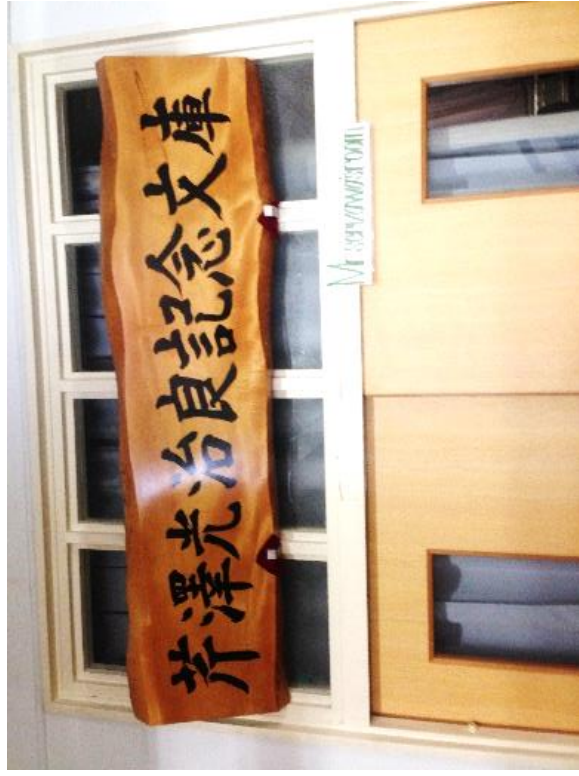 芹澤光治良記念文庫